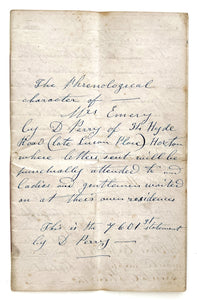 The Phrenological
character of
Mrs Emery
by D Perry of 31 Hyde
Road (late Luson Place) Hoxton
where letters sent will be
punctually attended to and
Ladies and gentlemen waited
on at their own residences
This is the 7601st statement
by D Perry